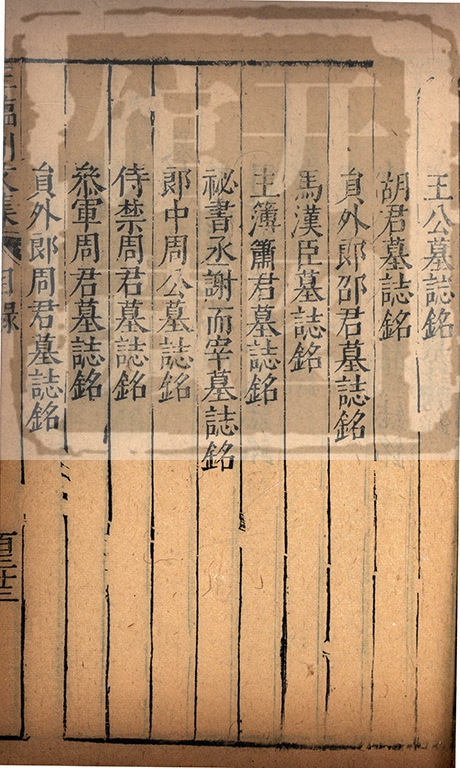 王公墓誌銘
胡君墓誌銘
員外郎邵君墓誌銘
馬漢臣墓誌銘
主簿蕭君墓誌銘
祕書丞謝師宰墓誌銘
郎中周公墓誌銘
侍禁周君墓誌銘
叅軍周君墓誌銘
員外郎周君墓誌銘
王臨川文集 目録